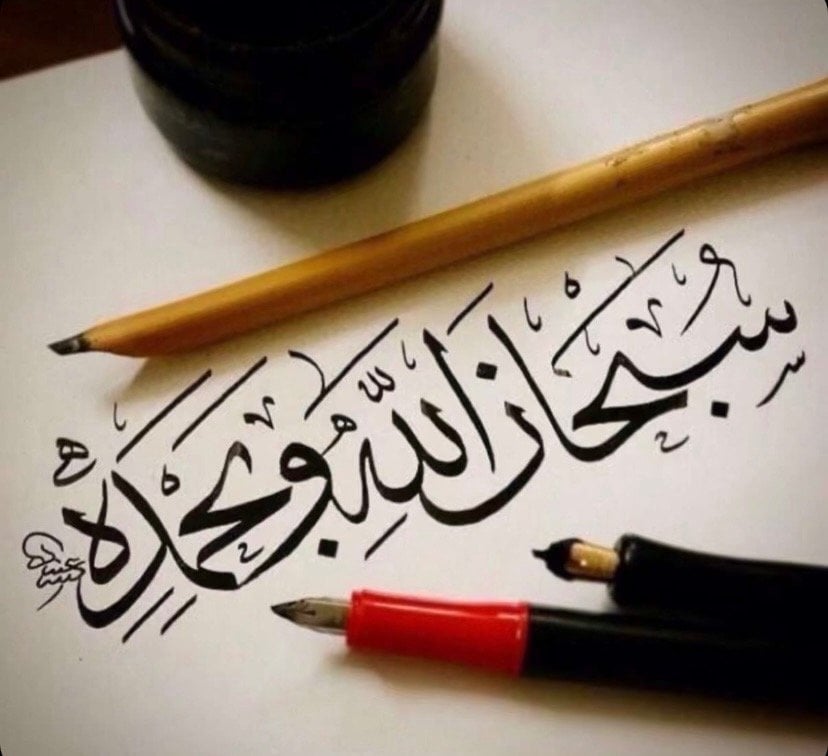 سُبْحَانَ اللّٰهِ وَبِحَمْدِهِ